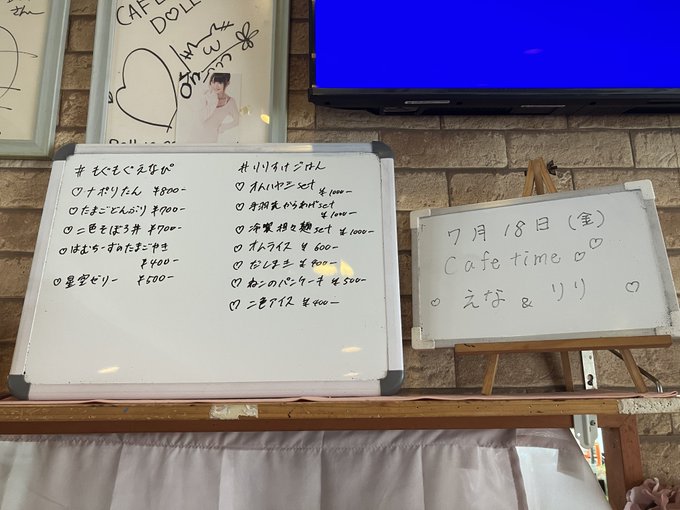 さん
CAFE
DOLL
#もぐもぐえなぴ
♡ナポリたん ¥800-
♡たまごどんぶり ¥700-
♡二色そぼろ丼 ¥700-
♡はむちーずのたまごやき
¥400-
♡星空ゼリー ¥500-
#りりすけごはん
♡オムハヤシset
¥1000-
♡手羽元からあげset
¥1000-
♡冷製担々麺set
¥1000-
♡オムライス ¥600-
♡だしまき ¥400-
♡ねこのパンケーキ ¥500-
♡二色アイス ¥400-
7月18日(金)
Cafe time ♡♡
♡ えな & リリ ♡